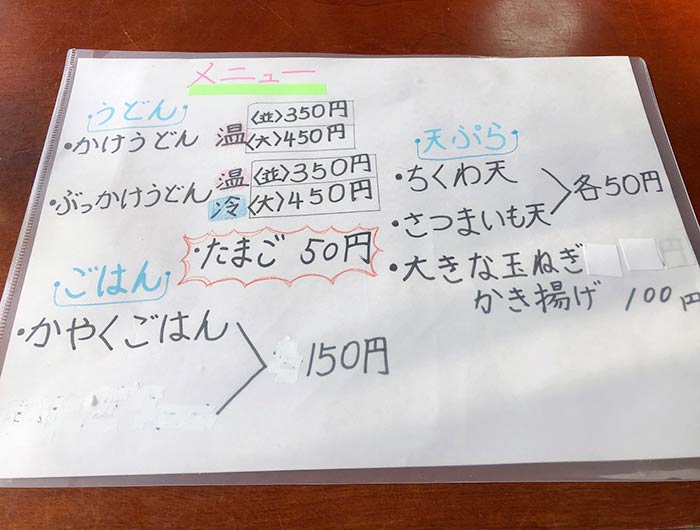 メニュー
うどん
・かけうどん 温 〈並〉350円
〈大〉450円
・ぶっかけうどん 温 〈並〉350円
冷 〈大〉450円
・たまご 50円
ごはん
・かやくごはん
150円
天ぷら
・ちくわ天
・さつまいも天
各50円
・大きな玉ねぎ 円
かき揚げ 100円